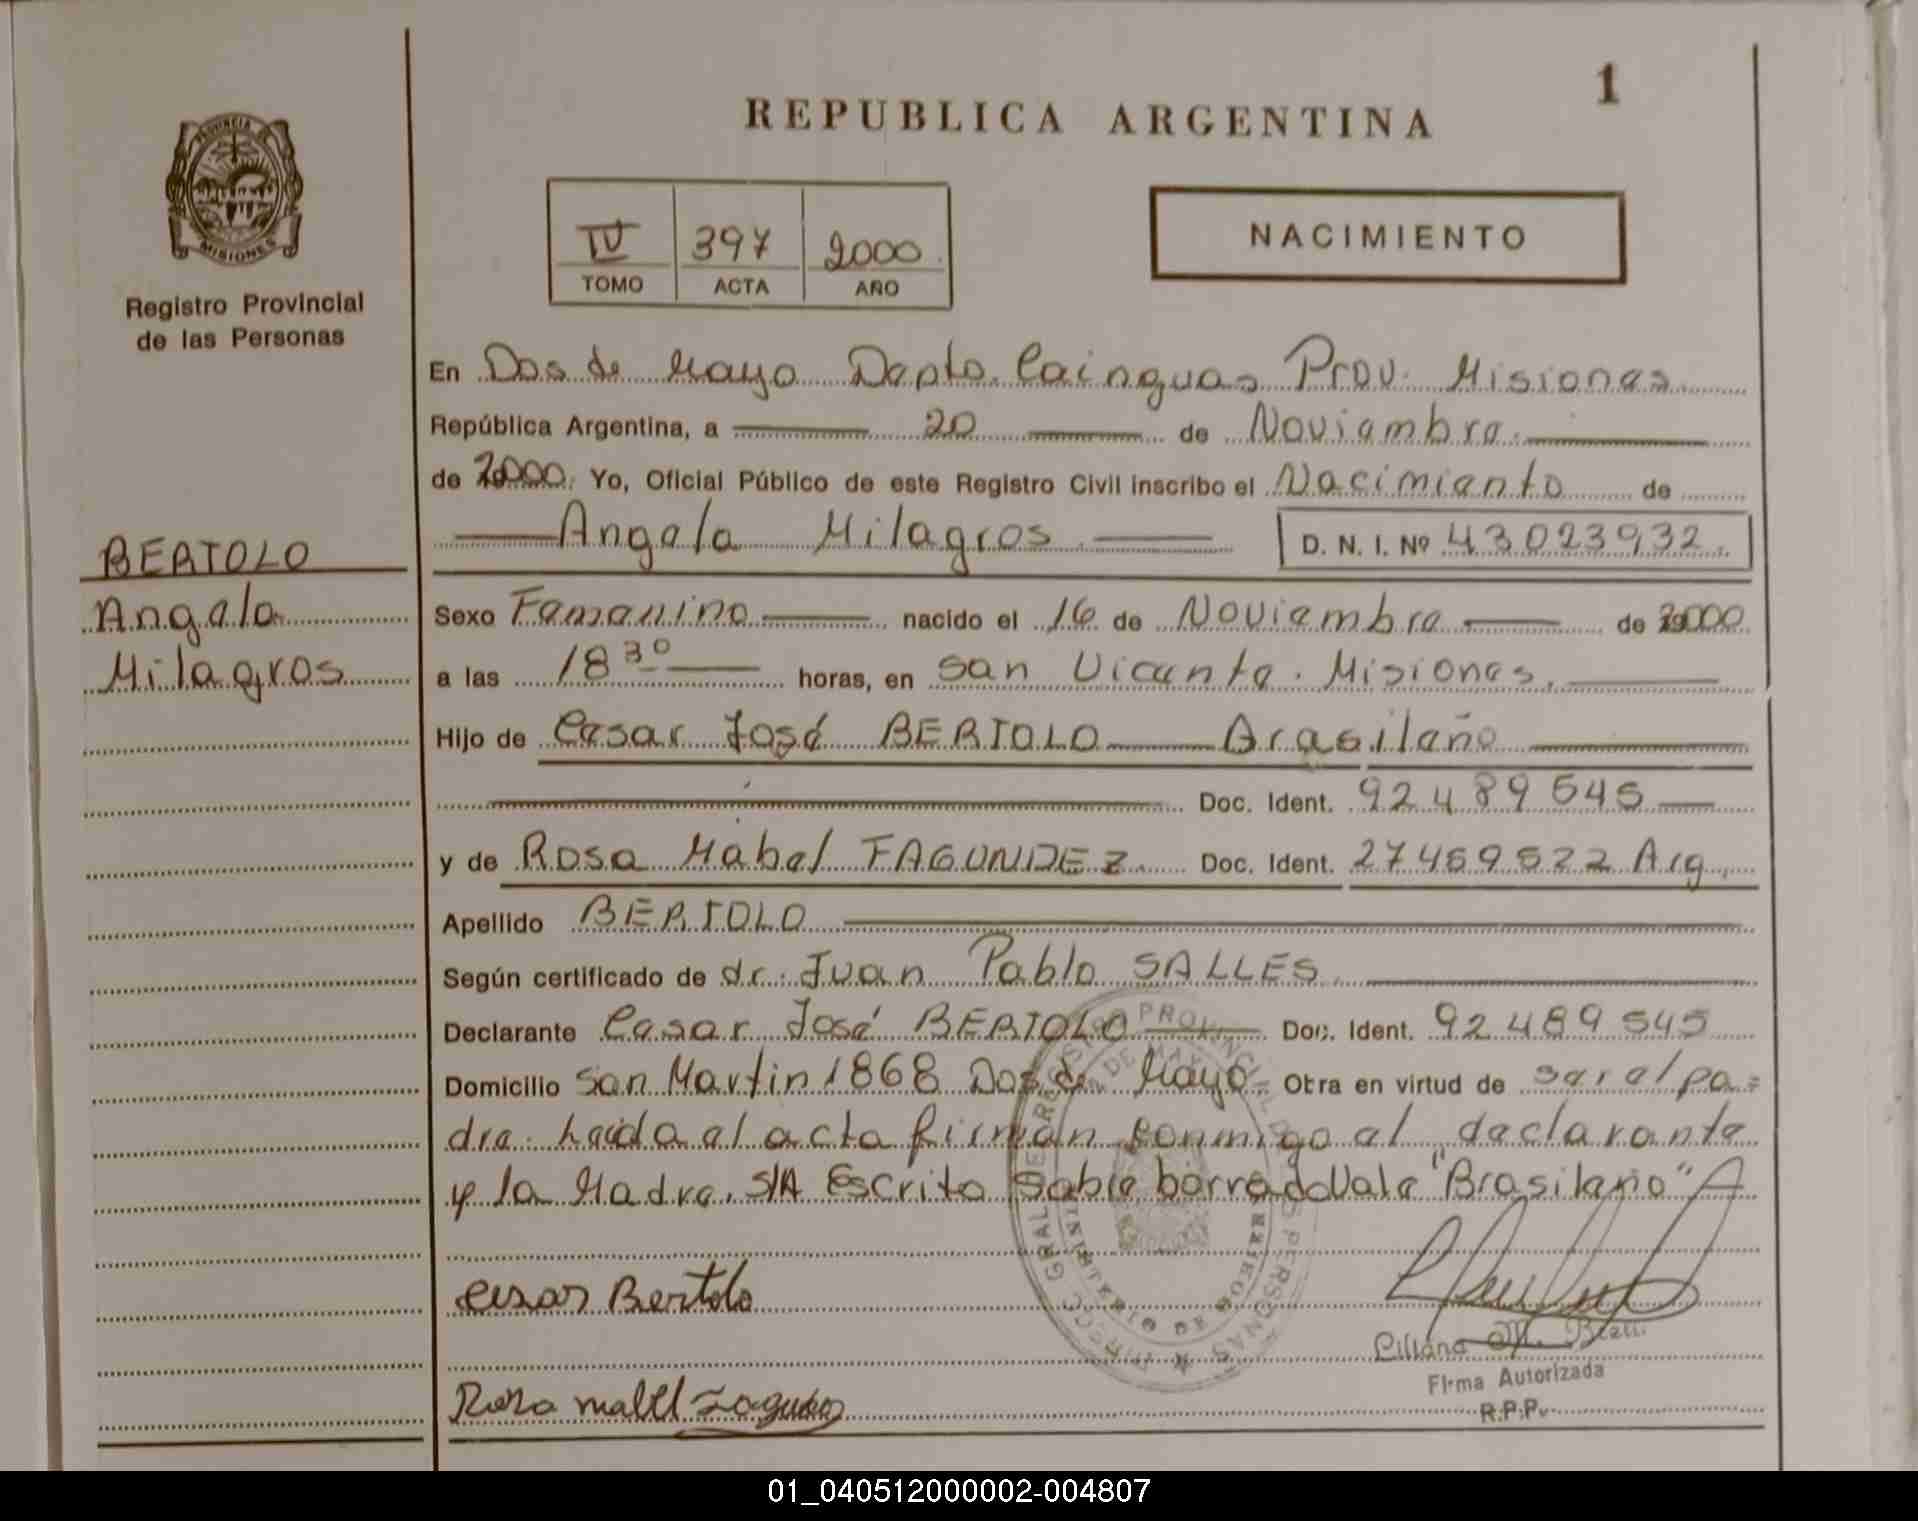 1
REPUBLICA ARGENTINA
PROVINCIA DE
MISIONES
Registro Provincial
de las Personas
IV 397 2000
TOMO ACTA AÑO
NACIMIENTO
En Dos de Mayo Depto. Cainguas Prov. Misiones
República Argentina, a 20 de Noviembre
de 2000 Yo, Oficial Público de este Registro Civil inscribo el Nacimiento de
Angela Milagros D. N. I. Nº 43023932.
BERTOLO
Angela
Milagros
Sexo Femenino nacido el 16 de Noviembre de 2000
a las 18 30 horas, en San Vicente. Misiones.
Hijo de Cesar José BERTOLO Brasileño
Doc. Ident. 92489545
y de Rosa Mabel FAGUNDEZ Doc. Ident. 27469522 Arg.
Apellido BERTOLO
Según certificado de dr. Juan Pablo SALLES
Declarante Cesar José BERTOLO Doc. Ident. 92489545
Domicilio San Martin 1868 Dos de Mayo- Obra en virtud de ser el pa=
dre. Leida el acta firman conmigo el declarante
y la Madre. S/A Escrito Sobre borrado Vale "Brasileño"
Cesar Bertolo
Rosa mabel
Liliana M.
Firma Autorizada
R.P.P.
01_040512000002-004807